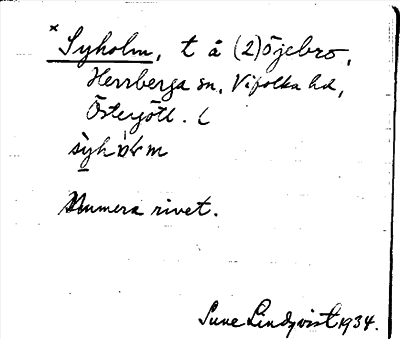 × Syholm, t å (2) Öjebro,
Herrberga sn, Vifolka hd,
Östergötl. l
Numera rivet.
Sune Lindqvist 1934.